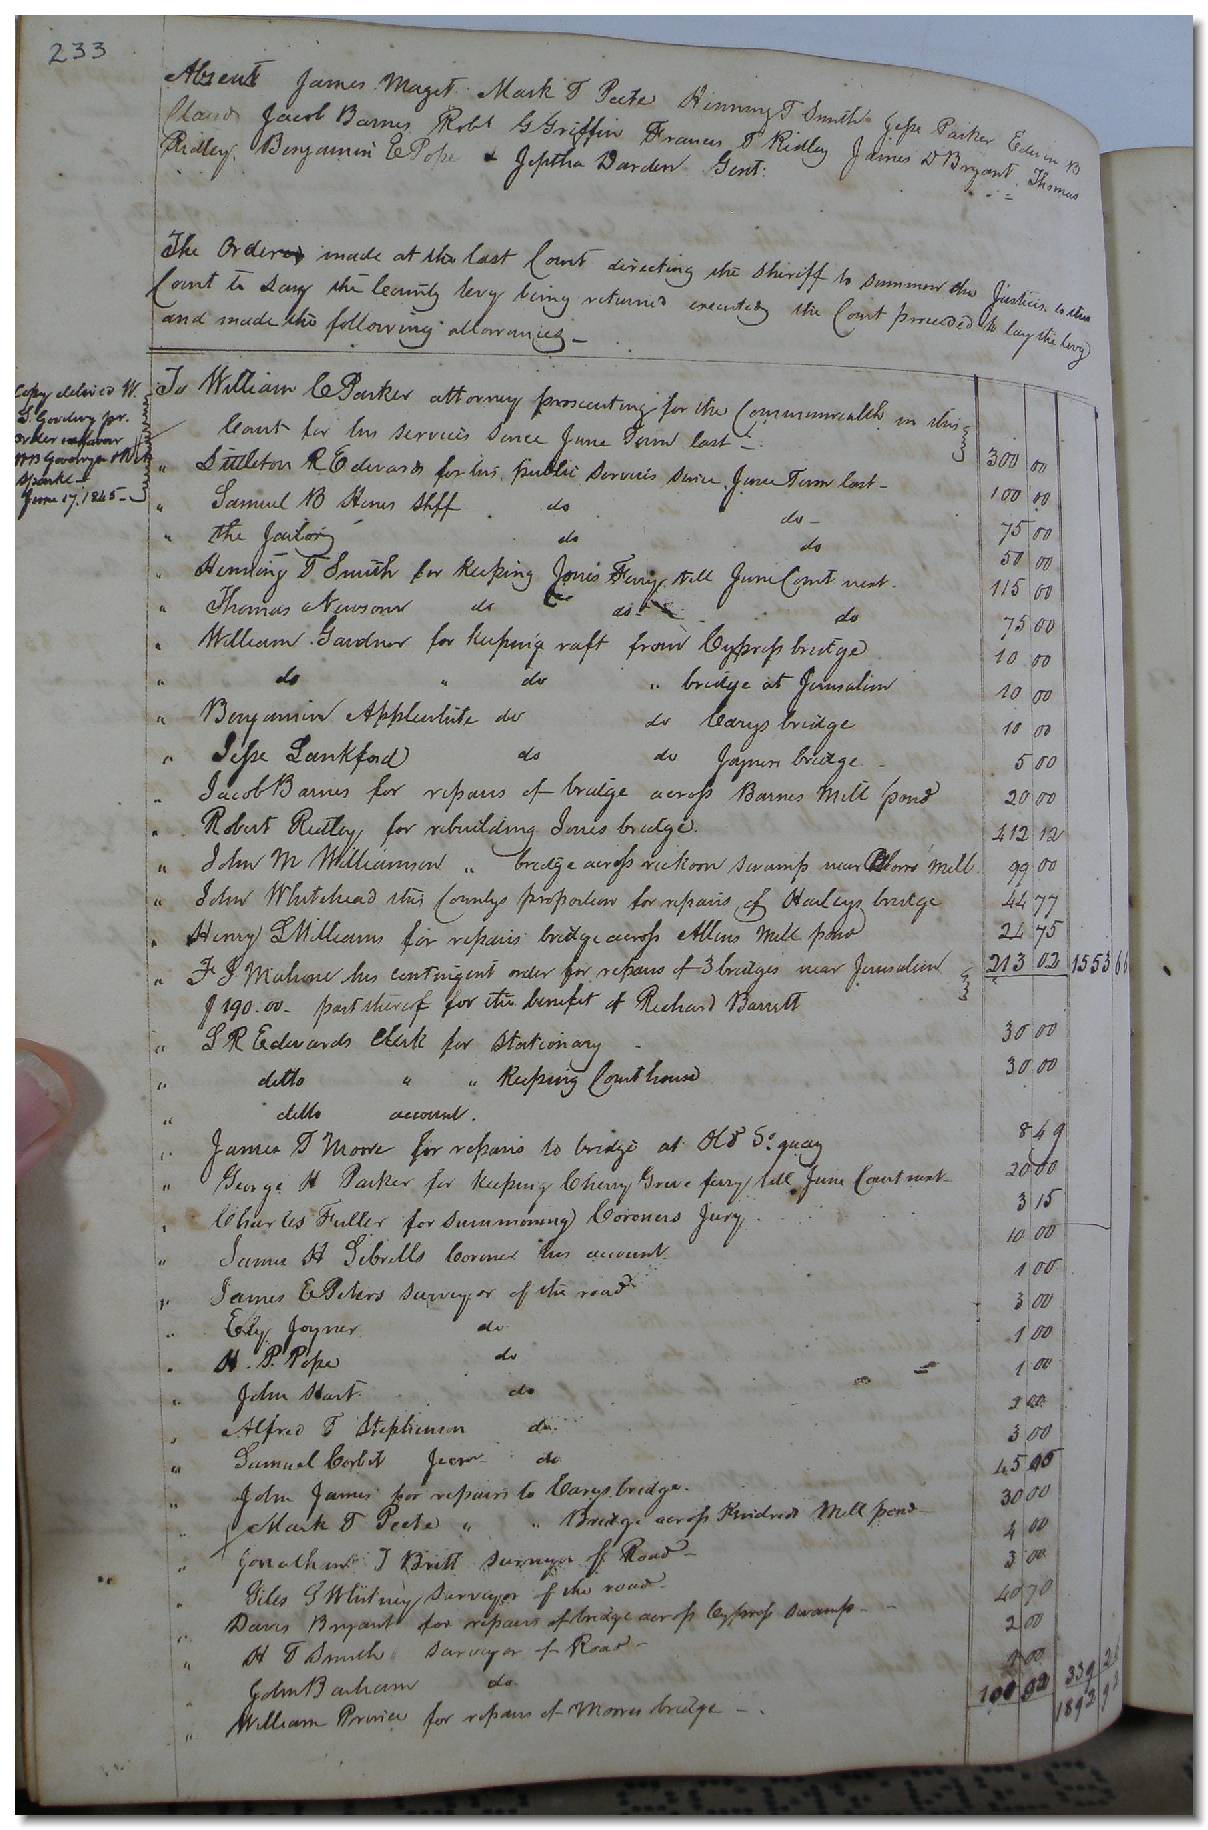 233
Absent James Maget Mark T Peete Henning T Smith Jesse Parker Edwin B
Claud Jacob Barnes Robt G Griffin Frances T Ridley James D Bryant Thomas
Ridley, Benjamin C Pope & Jeptha Darden Gent:
The Order made at the last Court directing the sheriff to summon the Justices to this
Court to Lay the County levy being returned executed, the Court proceeded to lay the levy
and made the following allowances—
Copy delived W.
G. Goodwyn pr.
order in favor
June 17. 1845—
To William C Parker attorney prosecuting for the Commonwealth in this
Court for his services since June Term last — 300 00
" Littleton R Edwards for his public services since June Term last — 100 00
" Samuel B Hines Shff do do — 75 00
" the Jailor do do 50 00
" Henning T Smith for keeping Jones Ferry till June Court next. 115 00
" Thomas Newsom do do do 75 00
" William Gardner for keeping raft from Cypress bridge 10 00
" do " do " bridge at Jerusalem 10 00
" Benjamin Applewhite do do Careys bridge 10 00
" Jesse Lankford do do Joyners bridge — 5 00
" Jacob Barnes for repairs of bridge across Barnes Mill pond 20 00
" Robert Ridley for rebuilding Jones bridge. 412 12
" John M Williamson " bridge across swamp near Mill 99 00
" John Whitehead this Countys proportion for repairs of Haileys bridge 44 77
" Henry L Williams for repairs bridge across Allens Mill pond 24 75
" F J Mahone his contingent order for repairs of 3 bridges near Jerusalem 213 02 1553 66
$ 190.00— part thereof for the benefit of Richard Barrett
" L R Edwards Clerk for Stationary — 30 00
" ditto " " keeping Court house 30 00
" ditto account.
" James T Moore for repairs to bridge at Old So. quay 8 49
" George H Parker for keeping Cherry Grove ferry till June Court next — 20 00
" Charles Fuller for summoning Coroners Jury. 3 15
" James H Sebrells Coroner his account 10 00
" James E Peters surveyor of the road 1 00
" Ely Joyner do 3 00
" H. P. Pope do 1 00
" John Hart do 1 00
" Alfred T Stephenson do
" Samuel Corbet do 3 00
" John James for repairs to Careys bridge. 45
" Mark T Peete " " Bridge across Kindreds Mill pond — 30 00
" Jonathan T Britt surveyor of Road — 4 00
" Giles S Whitney surveyor of the road — 3 00
" Davis Bryant for repairs of bridge across Cypress swamp — 40 70
" H T Smith surveyor of Road — 2 00
" John Barham do 00
" William for repairs of Morres bridge — 92 339
1892 92